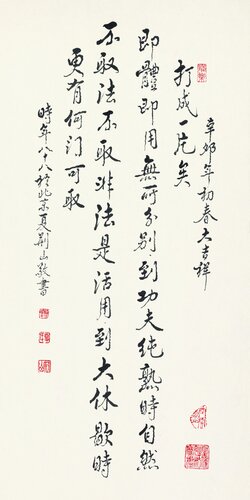 即體即用無所分別到功夫純熟時自然
打成一片矣
辛卯年初春大吉祥
不取法不取非法是活用到大休歇時
更有何门可取
時年八十八於北京夏荆山敬書